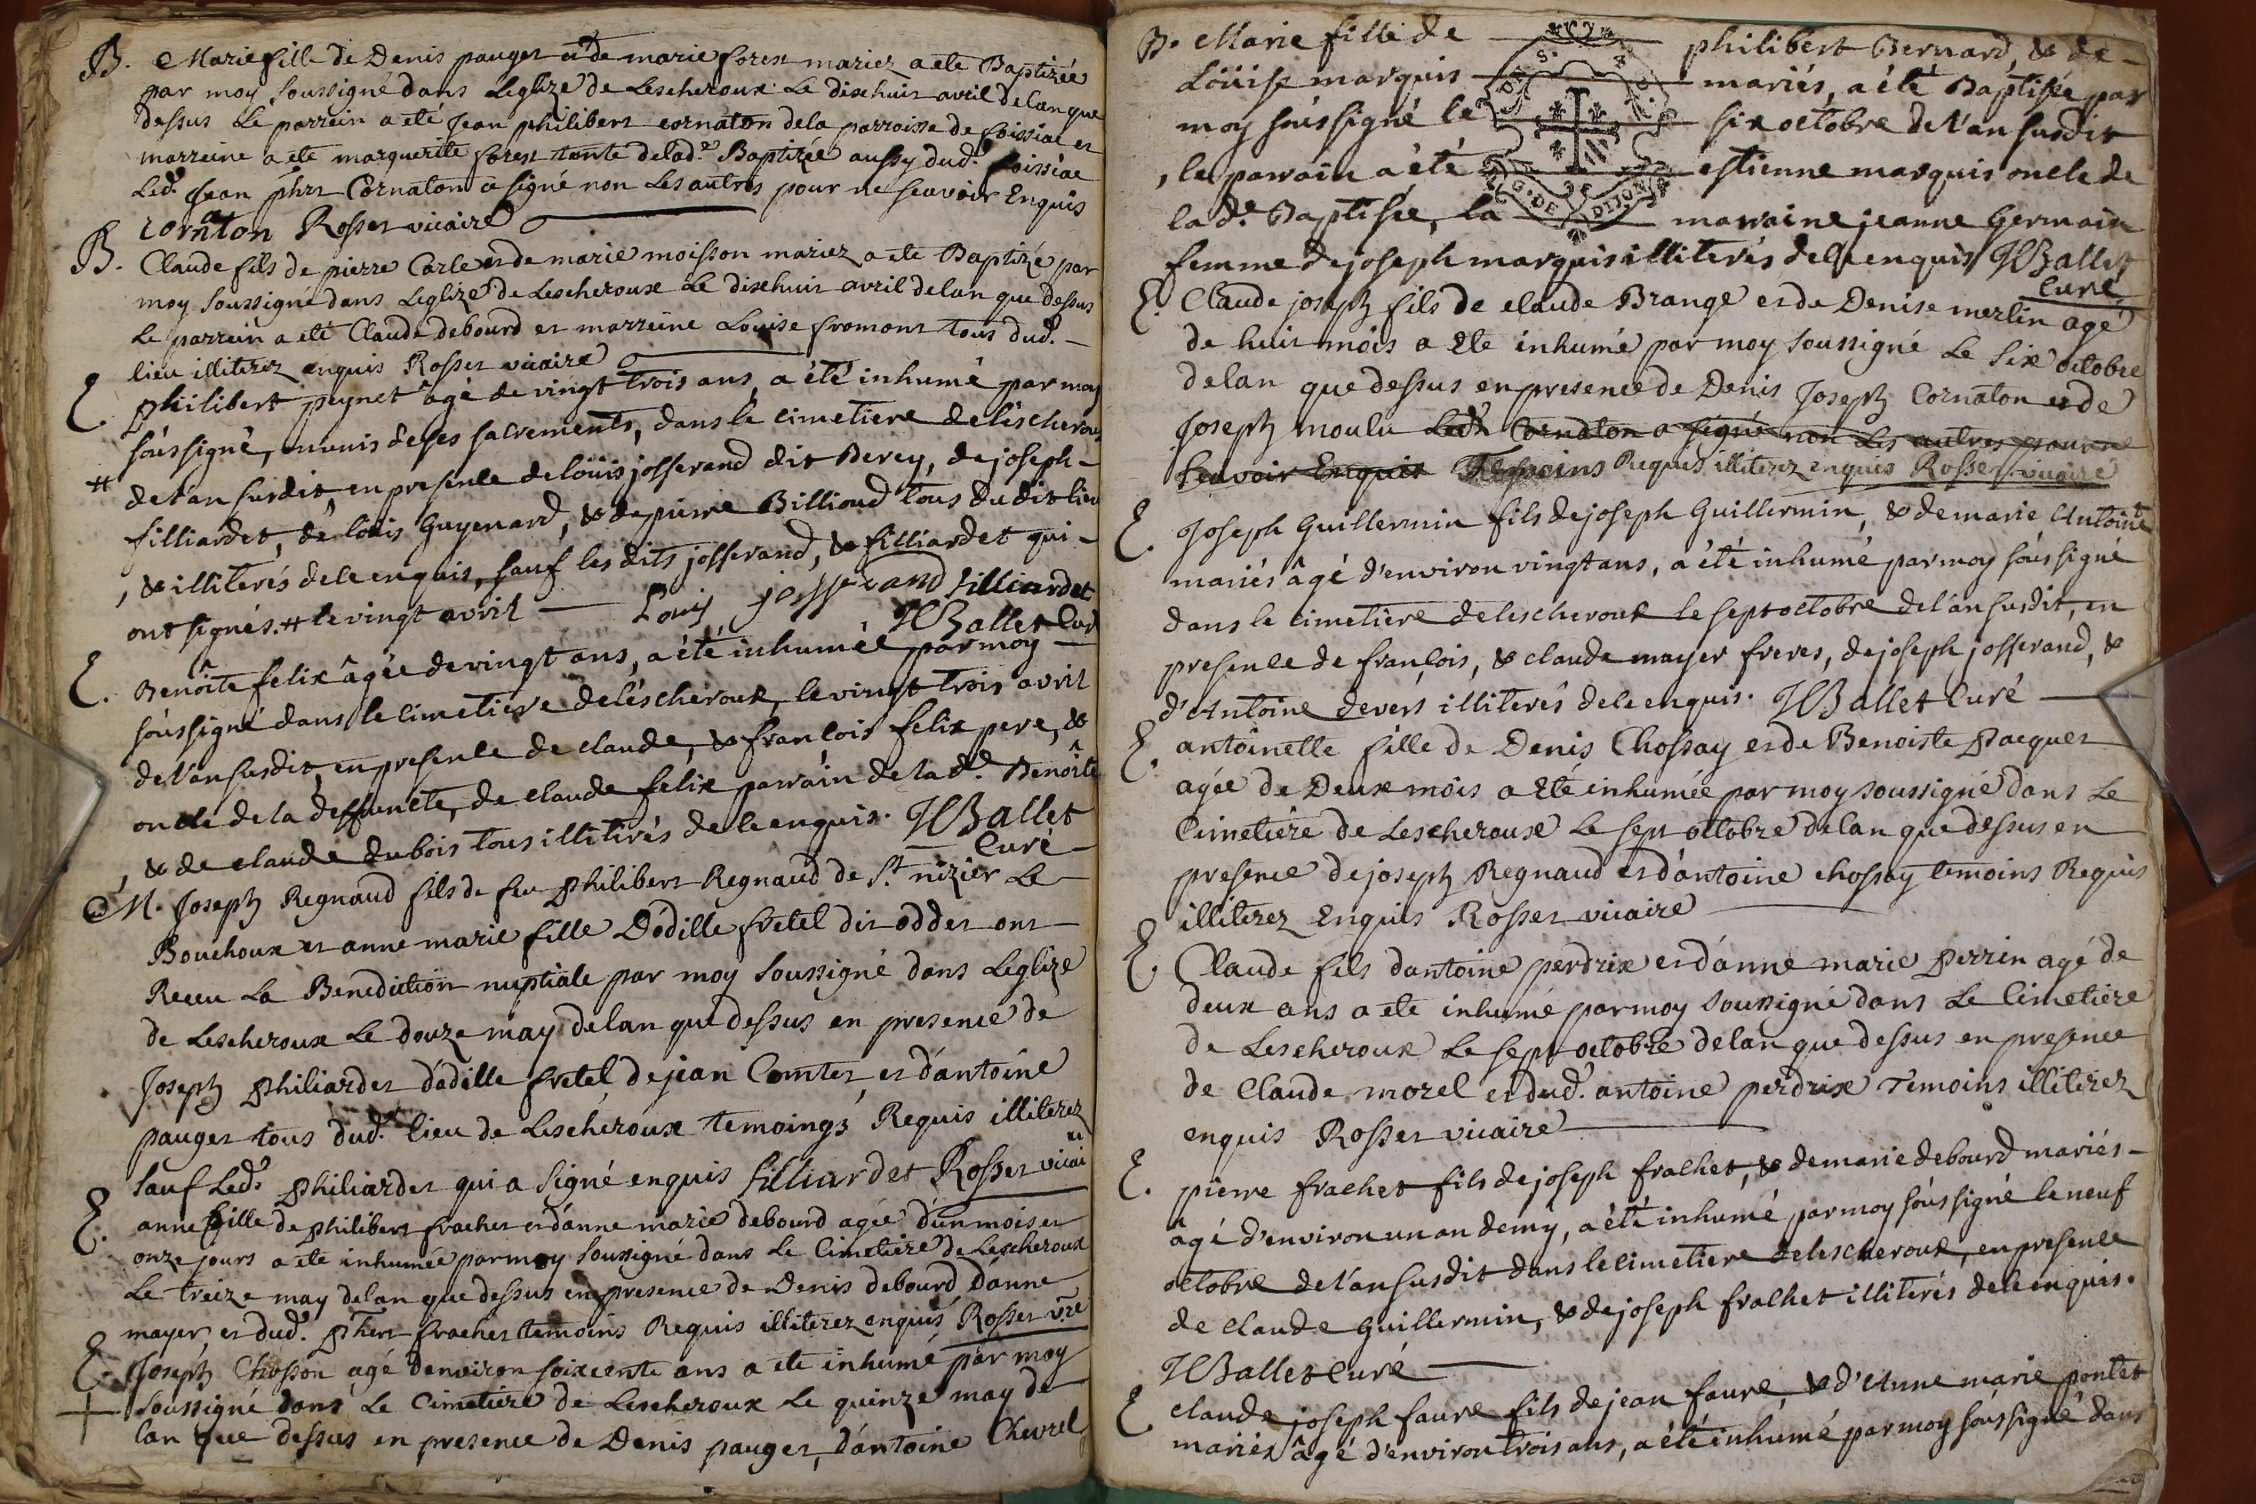 B. Marie fille de Denis pauget et de marie forest mariez a ete Baptizée
par moy soussigné dans Leglize de Lescheroux Le dixhuit avril de lan que
dessus Le parrein a eté Jean philibert cornaton dela parroisse de foissiac et
marreine a ete marguerite forest tante delad.e Baptizée aussy dud. foissiac
Led. Jean phrt Cornaton a signé non Les autres pour ne scavoir Enquis
cornaton Rosset vicaire
B. Claude fils de pierre Carle et de marie moisson mariez a ete Baptizé par
moy soussigné dans Leglize de Lescheroux Le dixhuit avril de lan que dessus
Le parrein a eté Claude debourd et marreine Louise fromont tous dud.
lieu illiterez enquis Rosset vicaire
E. philibert peynet âgé de vingt trois ans, a été inhumé par moy
soussigné, munis de ses sacrements, dans le cimetiere de lescheroux
# de l'an susdit, en presence de loüis josserand dit Berey, de joseph
filliardet, de loüis Guyenard, & de pierre Billioud tous du dit lieu
, & illiterés de ce enquis, sauf les dits josserand, & filliardet qui
ont signés. # le vingt avril Louis josserand filliardet
JBallet Curé
E. Benôite felix âgée de vingt ans, a été inhumée par moy
soussigné dans le cimetiere de lescheroux, le vingt trois avril
de l'an susdit, en presence de claude, & francois felix pere, &
oncle de la deffuncte, de claude felix parrain de la d.e Benôite
, & de claude dubois tous illiterés de ce enquis. JBallet
Curé
M. Joseph Regnaud fils de feu philibert Regnaud de S.t nizier Le
Bouchoux et anne marie fille Dódille fretel dit oddet ont
Receu La Benediction nuptiale par moy soussigné dans Leglize
de Lescheroux Le douze may de lan que dessus en presence de
Joseph philiardet dódille fretel, de jean Comtet, et dántoine
pauget tous dud. lieu de Lescheroux temoings Requis illiterez
sauf Led. philiardet qui a signé enquis filliardet Rosset vicai
E. anne fille de philibert frachet et dánne marie debourd agée dún mois et
onze jours a ete inhumée par moy soussigné dans Le Cimetiere de Lescheroux
Le treize may de lan que dessus en presence de Denis debourd, Dánne
mayer, et dud. phert frachet temoins Requis illiterez enquis Rosset v.re
E. Joseph Chosson agé denviron soixcente ans a ete inhumé par moy
soussigné dans Le Cimetiere de Lescheroux Le quinze may de
lan que dessus en presence de Denis pauget, dántoine Chevrel
B. Marie fille de philibert Bernard, & de
Loüise marquis mariés, a été Baptisée par
moy soussigné le six octobre de l'an susdit
, le parrain a été estienne marquis oncle de
la d.e Baptisée, la marraine jeanne Germain
G. DE DIJON
femme de joseph marquis illiterés de ce enquis JBallet
Curé
E. Claude joseph fils de claude Brange et de Denise merlin agé
de huit mois a eté inhumé par moy soussigné Le six octobre
de lan que dessus en presence de Denis Joseph Cornaton et de
Joseph moulu Led. Cornaton a signé non Les autres pour ne
scavoir Enquis Temoins Requis illiterez enquis Rosset vicaire
E. Joseph Guillermin fils de joseph Guillermin, & de marie Antoine
mariés âgé d'environ vingt ans, a été inhumé par moy soussigné
dans le cimetiere de lescheroux le sept octobre de l'an susdit, en
presence de francois, & claude mayer freres, de joseph josserand, &
d'Antoine devers illiterés de ce enquis. JBallet Curé
E. antoinette fille de Denis Chossay et de Benoiste pacquet
agée de Deux mois a eté inhumée par moy soussigné dans Le
Cimetiere de Lescheroux Le sept octobre de lan que dessus en
presence de joseph Regnaud et dántoine chossay temoins Requis
illiterez Enquis Rosset vicaire
E. Claude fils dantoine perdrix et dánne marie perrin agé de
deux ans a ete inhumé par moy soussigné dans Le Cimetiere
de Lescheroux Le sept octobre de lan que dessus en presence
de Claude morel et dud. antoine perdrix temoins illiterez
enquis Rosset vicaire
E. pierre frachet fils de joseph frachet, & de marie debourd mariés
âgé d'environ un an demy, a été inhumé par moy soussigné le neuf
octobre de l'an susdit dans le cimetiere de lescheroux, en presence
de claude Guillermin, & de joseph frachet illiterés de ce enquis.
JBallet Curé
E. claude joseph faure fils de jean faure, & d'Anne marie pontet
mariés âgé d'environ trois ans, a été inhumé par moy soussigné dans